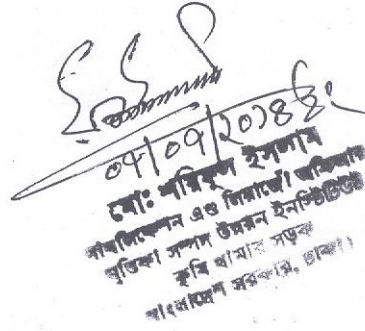 ০৭/০৭/২০১৪ খ্রি:
মো: শরিফুল ইসলাম
পাবলিকেশন এণ্ড লিয়াজোঁ অফিসার
মৃত্তিকা সম্পদ উন্নয়ন ইনস্টিটিউট
কৃষি খামার সড়ক
বাংলাদেশ সরকার, ঢাকা।